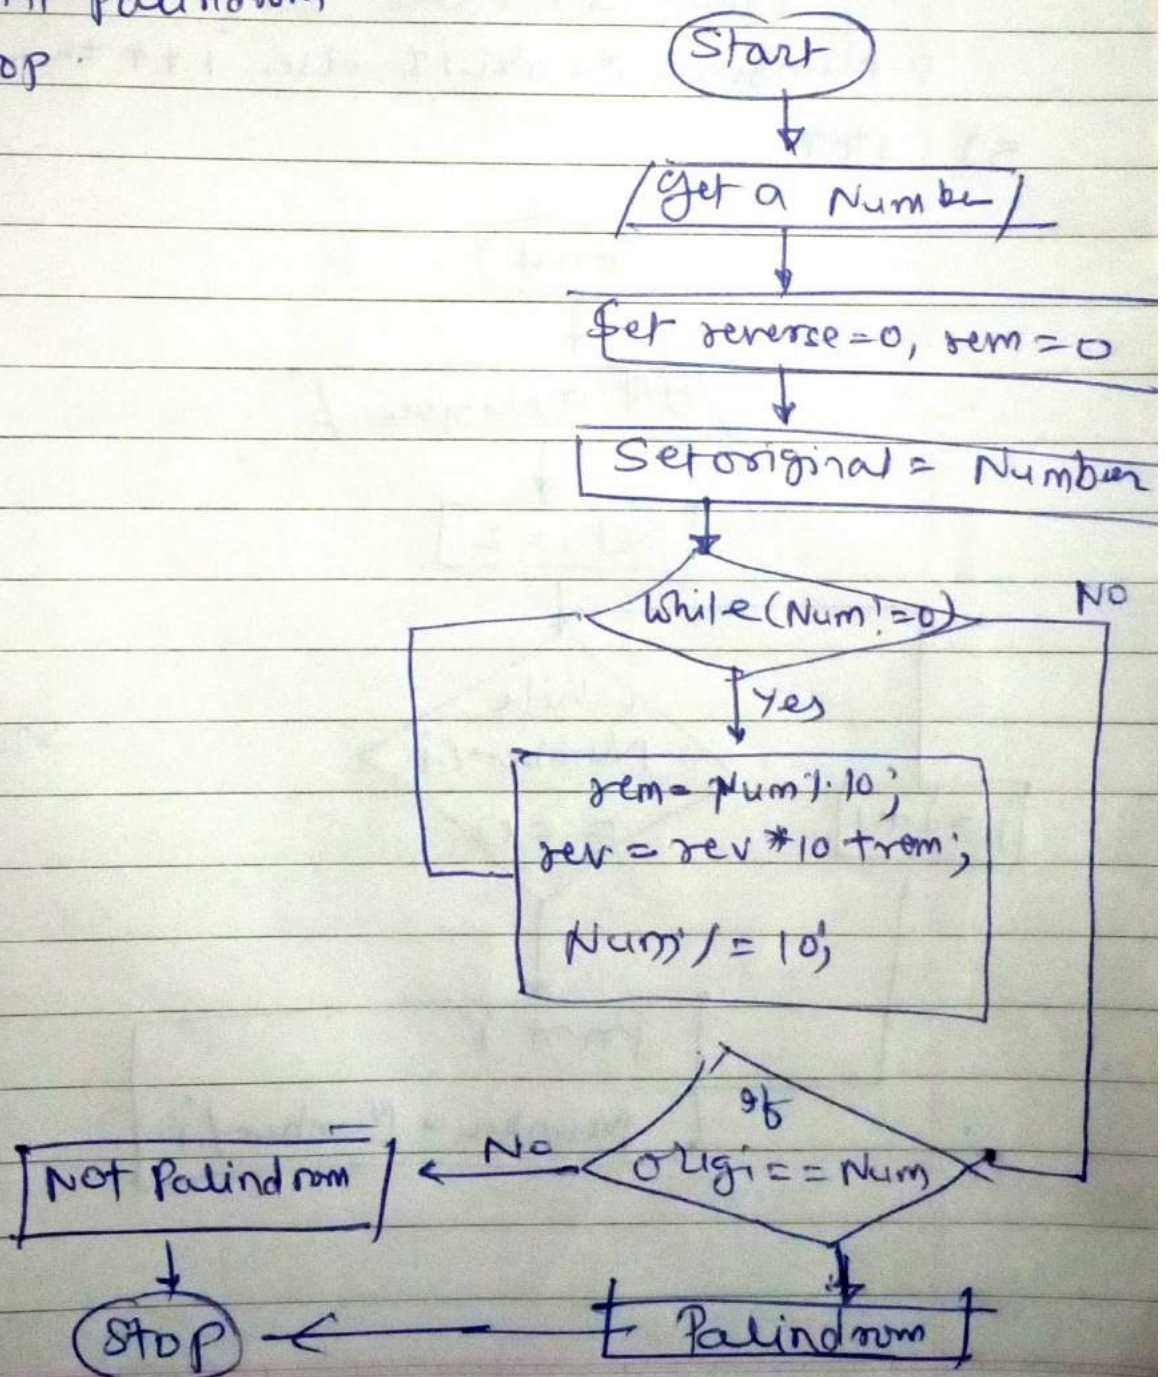 Palindrom
op.
Start
Get a Number
Set reverse=0, rem=0
Set original = Number
While(Num!=0)
NO
Yes
rem= Num%10;
rev = rev *10 +rem;
Num/=10;
If
origi==Num
No
Not Palindrom
Stop
Palindrom